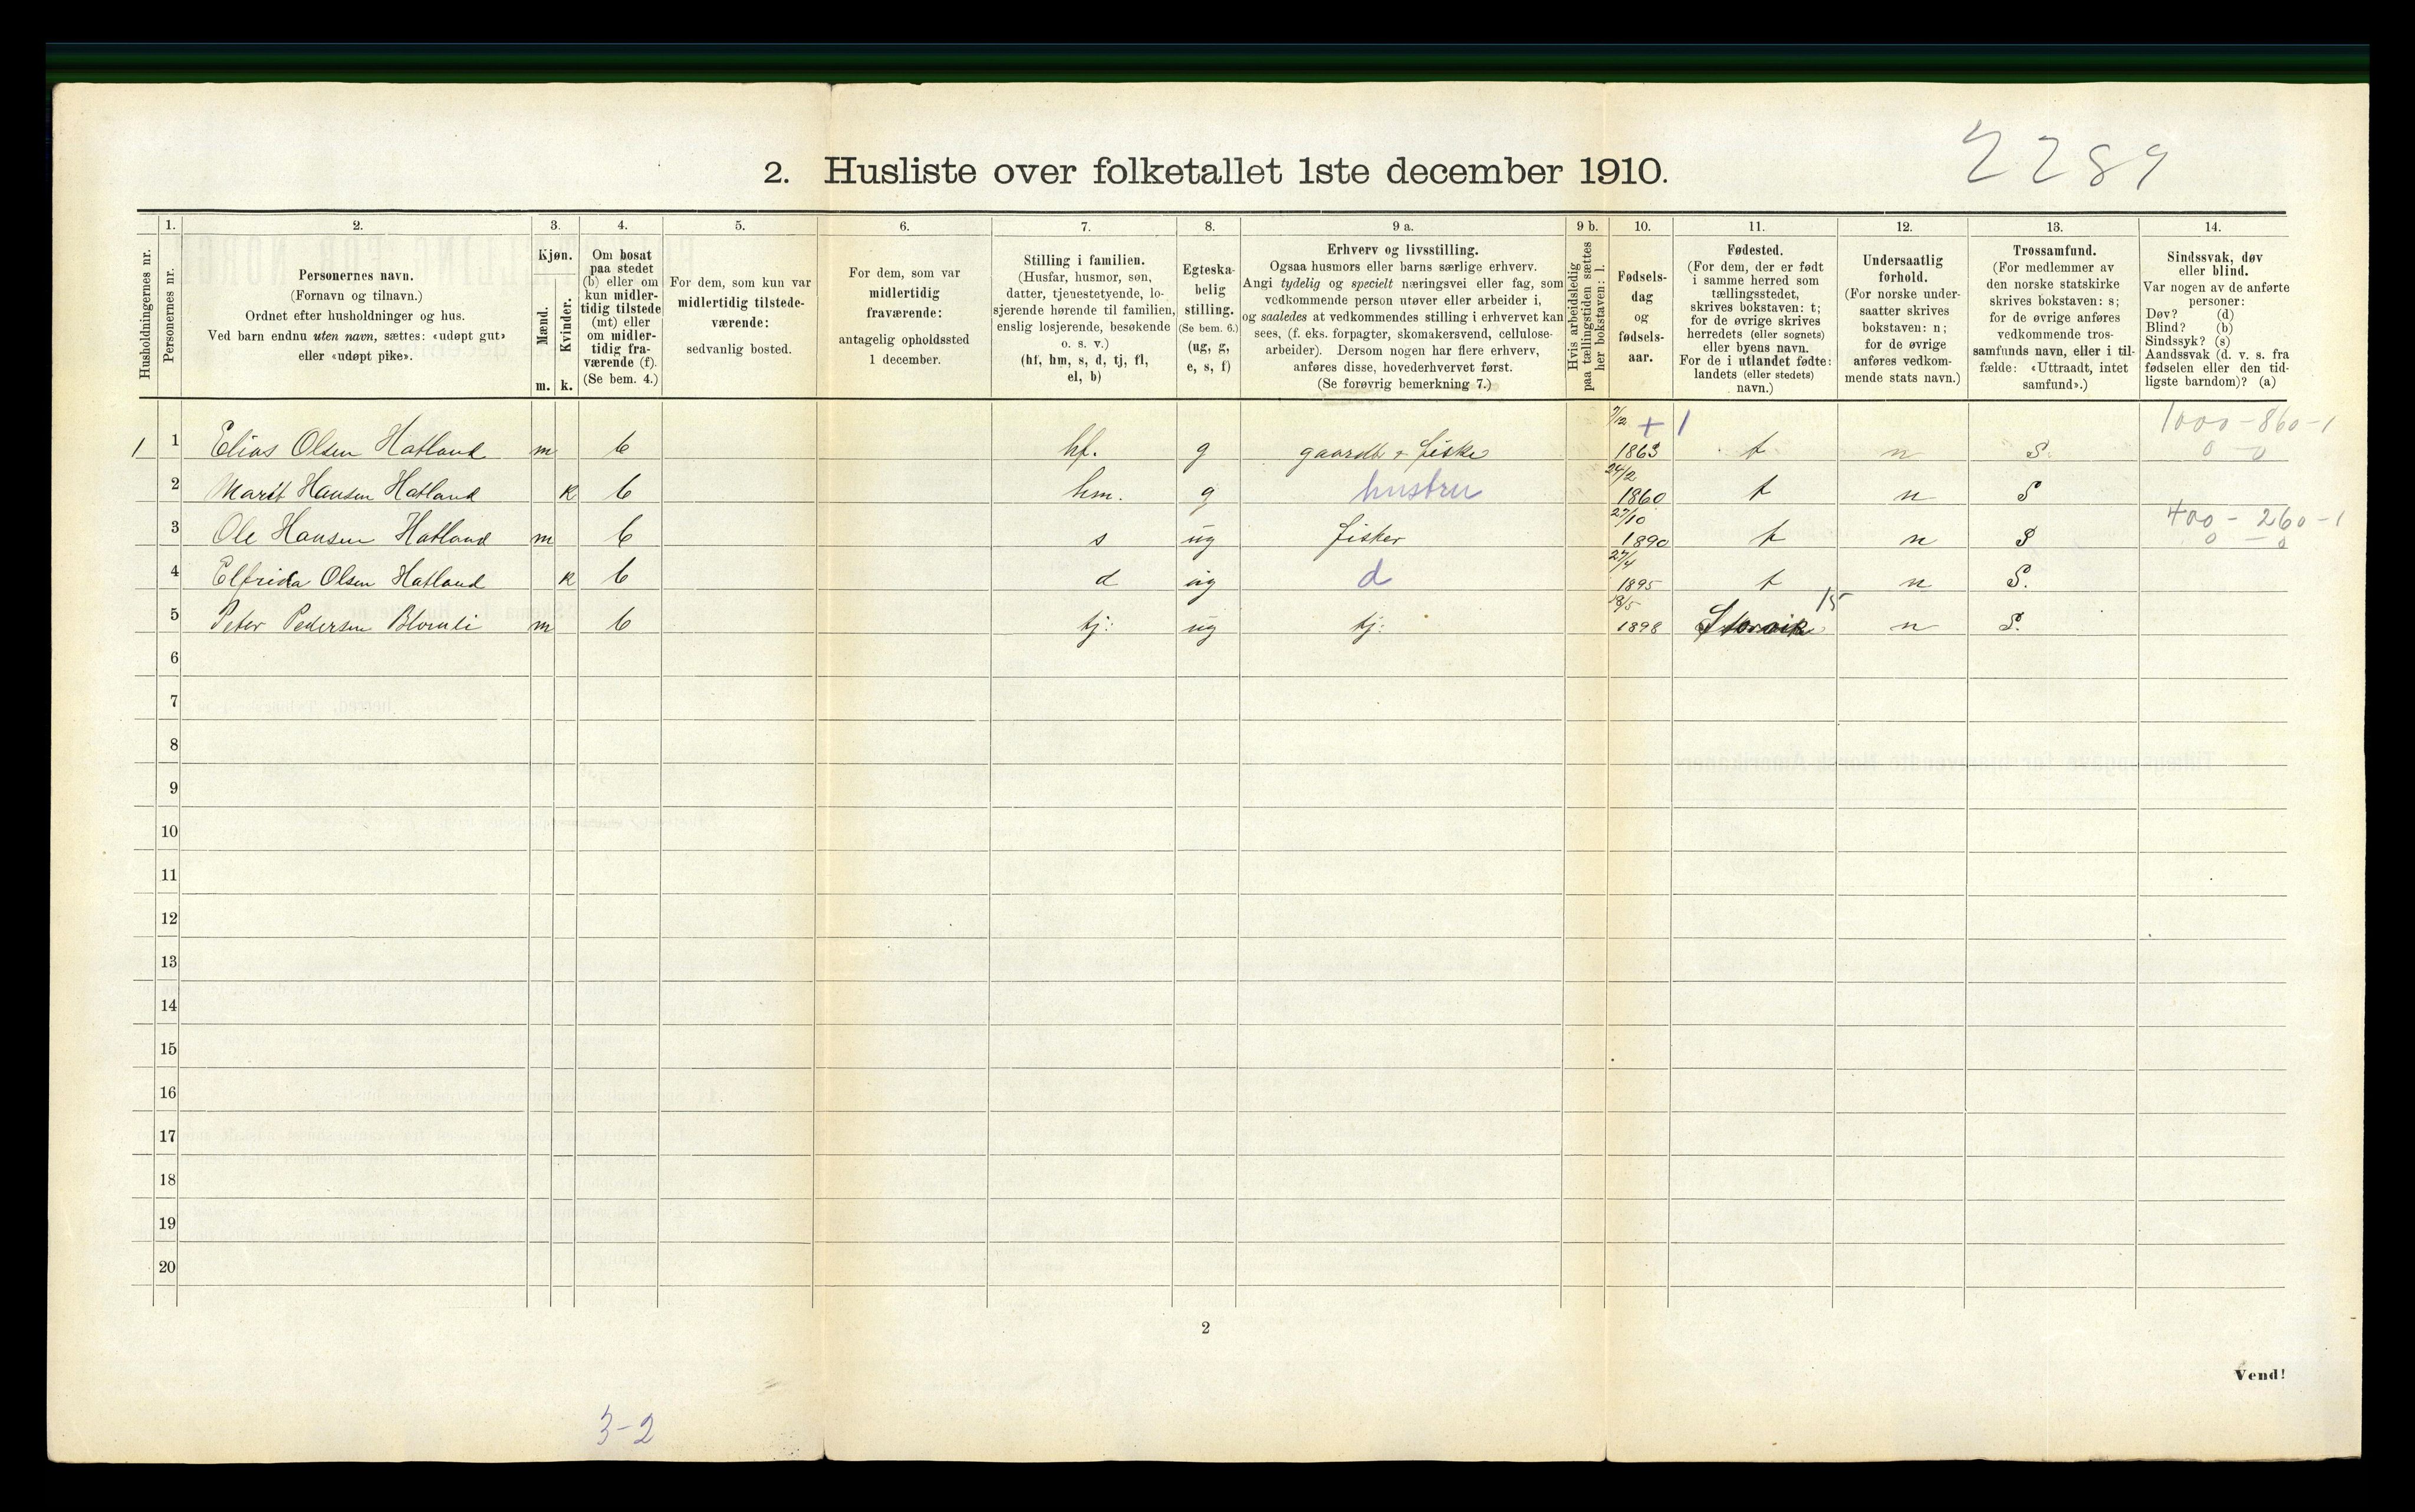 2289
2. Husliste over folketallet 1ste december 1910.
Husholdningernes nr.
1. Personernes nr.
2. Personernes navn.
(Fornavn og tilnavn.)
Ordnet efter husholdninger og hus.
Ved barn endnu uten navn, sættes: «udøpt gut»
eller «udøpt pike».
3. Kjøn.
Mænd. m.
Kvinder. k.
4. Om bosat
paa stedet
(b) eller om
kun midler-
tidig tilstede
(mt) eller
om midler-
tidig fra-
værende (f).
(Se bem. 4.)
5. For dem, som kun var
midlertidig tilstede-
værende:
sedvanlig bosted.
6. For dem, som var
midlertidig
fraværende:
antagelig opholdssted
1 december.
7. Stilling i familien.
(Husfar, husmor, søn,
datter, tjenestetyende, lo-
sjerende hørende til familien,
enslig losjerende, besøkende
o. s. v.)
(hf, hm, s, d, tj, fl,
el, b)
8. Egteska-
belig
stilling.
(Se bem. 6.)
(ug, g,
e, s, f)
9 a. Erhverv og livsstilling.
Ogsaa husmors eller barns særlige erhverv.
Angi tydelig og specielt næringsvei eller fag, som
vedkommende person utøver eller arbeider i,
og saaledes at vedkommendes stilling i erhvervet kan
sees, (f. eks. forpagter, skomakersvend, cellulose-
arbeider). Dersom nogen har flere erhverv,
anføres disse, hovederhvervet først.
(Se forøvrig bemerkning 7.)
9 b. Hvis arbeidsledig
paa tællingstiden sættes
her bokstaven: l.
10. Fødsels-
dag
og
fødsels-
aar.
11. Fødested.
(For dem, der er født
i samme herred som
tællingsstedet,
skrives bokstaven: t;
for de øvrige skrives
herredets (eller sognets)
eller byens navn.
For de i utlandet fødte:
landets (eller stedets)
navn.)
12. Undersaatlig
forhold.
(For norske under-
saatter skrives
bokstaven: n;
for de øvrige
anføres vedkom-
mende stats navn.)
13. Trossamfund.
(For medlemmer av
den norske statskirke
skrives bokstaven: s;
for de øvrige anføres
vedkommende tros-
samfunds navn, eller i til-
fælde: «Uttraadt, intet
samfund».)
14. Sindssvak, døv
eller blind.
Var nogen av de anførte
personer:
Døv? (d)
Blind? (b)
Sindssyk? (s)
Aandssvak (d. v. s. fra
fødselen eller den tid-
ligste barndom)? (a)
7/12 + 1 1000-860-1
1 1 Elias Olsen Hatland m b hf. g gaardb + fiske 1863 t n S. 0 - 0
24/2
2 Marit Hansen Hatland k b hm. g hustru 1860 t n S
27/10 400 - 260 - 1
3 Ole Hansen Hatland m b s ug fisker 1890 t n S 0 - 0
27/4
4 Elfrida Olsen Hatland k b d ug d 1895 t n S.
18/5 15
5 Peter Pedersen Blomli m b tj: ug tj: 1898 n S.
6
7
8
9
10
11
12
13
14
15
16
17
18
19
20
2
Vend!
3-2